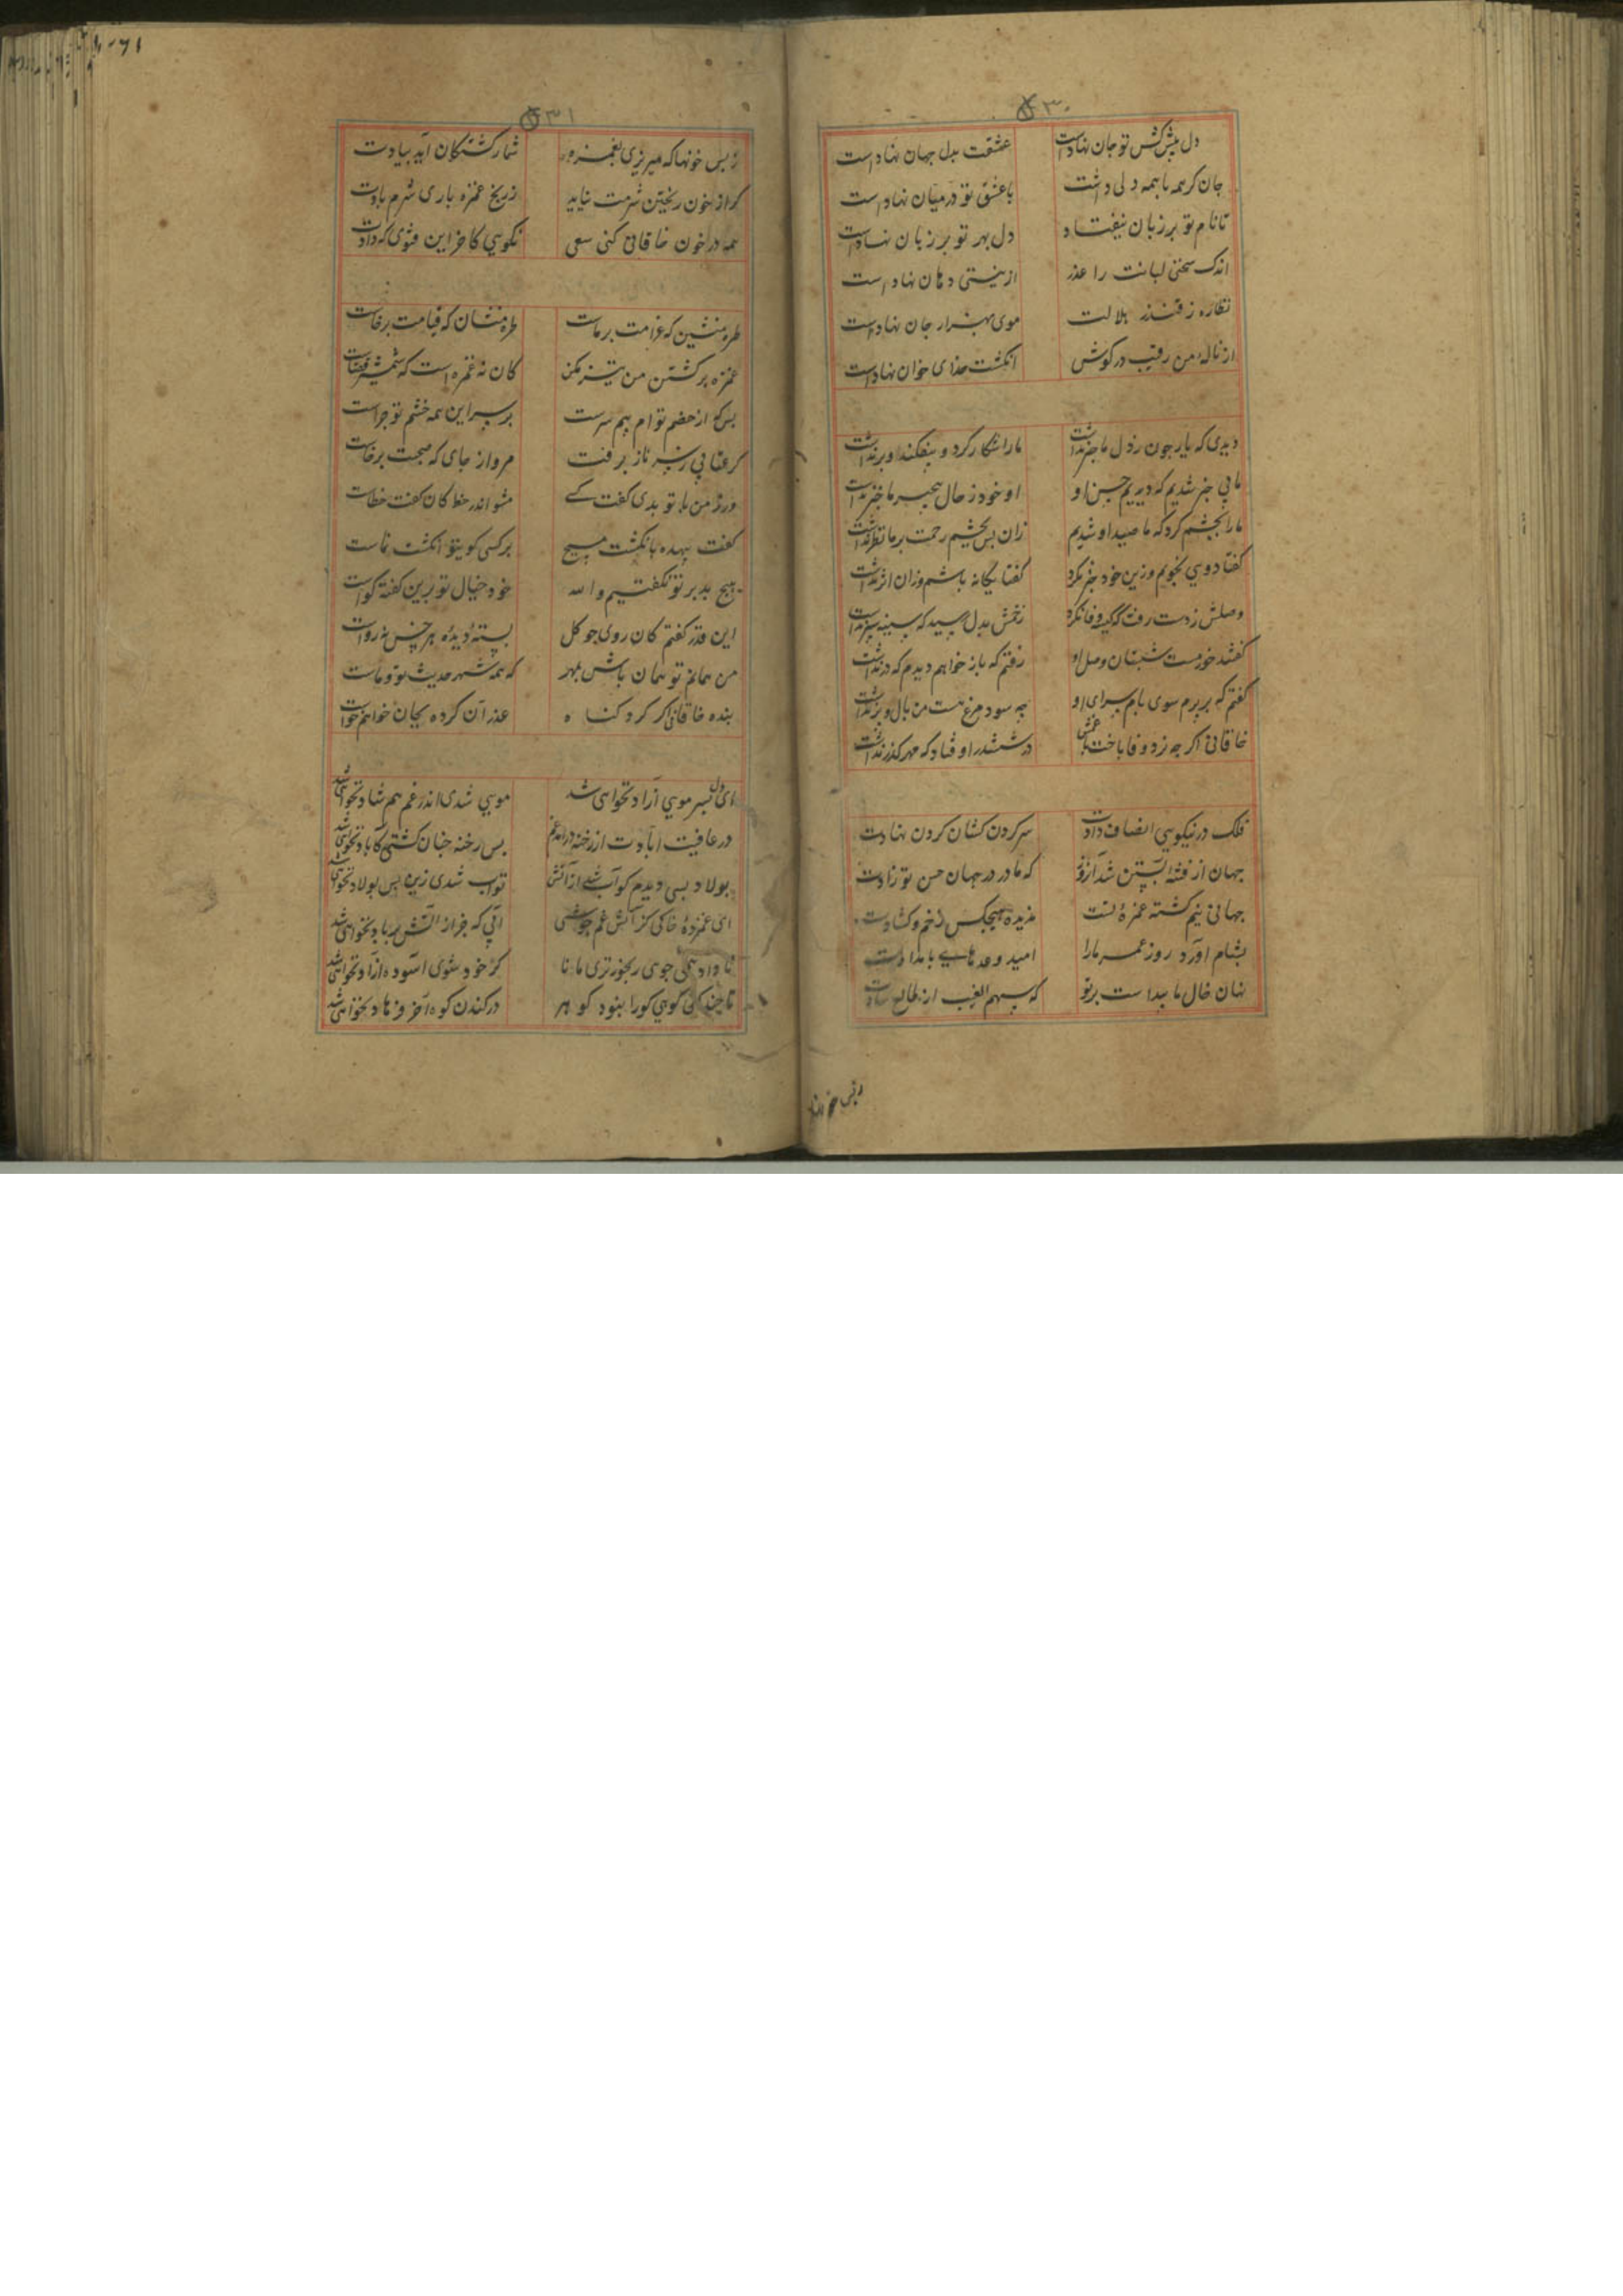 ۳۰
دل پیش کش تو جان نهادست عشقت بدل جهان نهاد است
جان کر همه با همه دلی داشت با عشق تو در میان نهاد است
تا نام تو بر زبان بیفتاد دل بهر تو بر زبان نهاد است
اندک سخنی لبانت را عذر از نیستی دهان نهاد است
نظاره ز قندز هلالت موی بهزار جان نهاد است
از ناله من رقیب در کوش انکشت خدای خوان نهاد است
دیدی که یار چون ز دل ما خبر نداشت ما را شکار کرد و بیفکند و برنداشت
ما بی خبر شدیم که دیدیم حسن او او خود ز حال بیخبر ما خبر نداشت
ما را بچشم کرد که ما صید او شدیم زان پس بچشم رحمت بر ما نظر نداشت
کفتا دویی نجویم وزین خود خبر نکرد کفتا یکانه باشم وزان اثر نداشت
وصلش ز دست رفت که کیسه وفا نکرد زخمش بدل رسید که سینه سپر نداشت
کفتند خرمست شبستان وصل او رفتم که باز خواهم دیدم که در نداشت
کفتم که بر پرم سوی بام سرای او چه سود مرغ همت من بال و پر نداشت
خاقانی اکر چه نرد وفا باخت با غمش در ششدر اوفتاد که مهره کذر نداشت
فلک در نیکویی انصاف دادت سر کردن کشان کردن نهادت
جهان از فتنه آبستن شد آنروز که مادر در جهان حسن تو زادت
جهانی نیم کشته غمزه تست ندیده هیچکس زخم و کشادت
بشام آورد روز عمر ما را امید وعدهای بامدادت
نهان خال ما پیداست بر تو که سهم الغیب از طالع
۳۱
ز بس خونها که میریزی بغمزه شمار کشتکان آید بیادت
کر از خون ریختن شرمت نیاید ز رنج غمزه باری شرم بادت
همه در خون خاقانی کنی سعی نکویی کاخر این فتوی که دادت
طره منشین که غرامت بر ماست طره منشان که قیامت برخاست
غمزه بر کشتن من تیز مکن کان نه غمزه است که شمشیر قضاست
بس کو از خصم توام بیم سرست بر سر این همه خشم تو چراست
کر عتابی ز سر ناز برفت مرو از جای که صحبت برخاست
ور ز من با تو بدی کفت کسی مشو اندر خط کان کفت خطاست
کفت بیهده بانکشت مپیچ بر کسی کو بتو انکشت نماست
هیچ بد بر تو نکفتیم والله خود خیال تو برین کفته کواست
این قدر کفتم کان روی چو کل بسته دیده هر خس نه رواست
من همانم تو همان باش بمهر که همه شهر حدیث تو و ماست
بنده خاقانی اکر کرد کناه عذر آن کرده بجان خواهم خواست
ای دل بسر مویی آزاد نخواهی شد مویی شدی اندر غم هم شاد نخواهی شد
در عافیت آبادت از رخنه درآمد غم پس رخنه چنان کشتی کاباد نخواهی شد
پولاد بسی دیدم کو آب شد از آتش تو آب شدی زین پس پولاد نخواهی شد
ای غمزده خاکی کز آتش غم جوشی آبی که جز از آتش بر باد نخواهی شد
تا داد همی جویی رنجورتری مانا کز خود نشوی آسوده از داد نخواهی شد
تا چند کنی کوهی کورا نبود کوهر در کندن کوه آخر فرهاد نخواهی شد